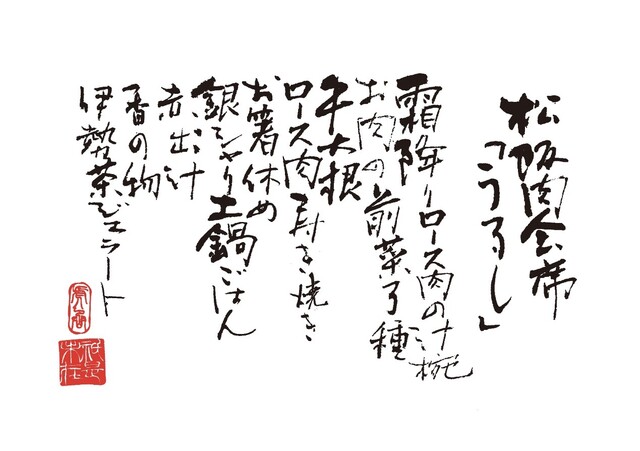 松阪肉会席
「うるし」
霜降りロース肉の汁椀
お肉の前菜了種
牛大根
ロース肉寿き焼き
お箸休め
銀シャリ土鍋ごはん
赤出汁
香の物
伊勢茶ジェラート